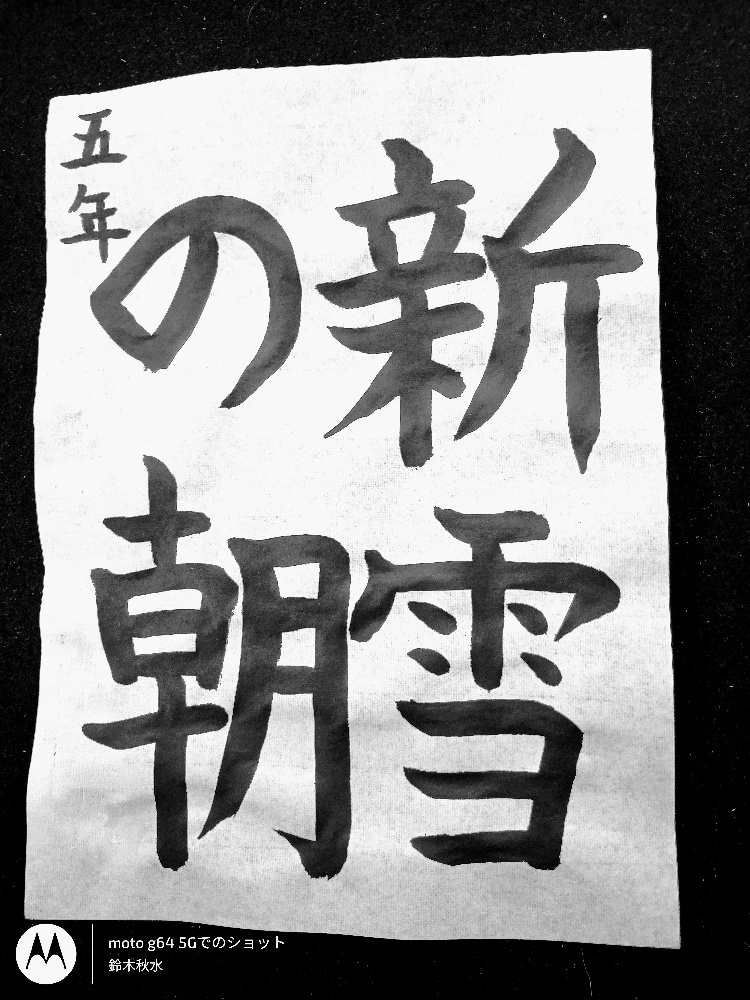 新雪
の朝
五年
moto g64 5Gでのショット
鈴木秋水